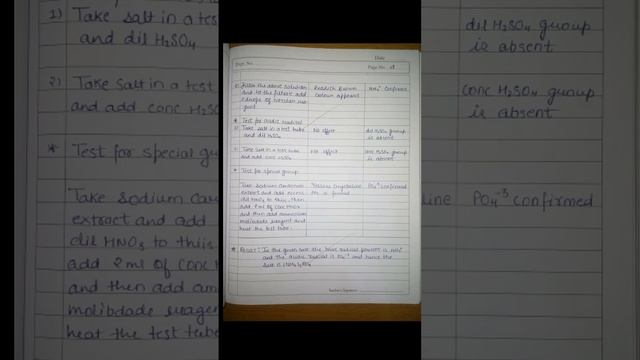 1) Take salt in a test
and dil H₂SO₄
2) Take salt in a test
and add conc H₂SO
* Test for special gr
Take Sodium Ca
extract and add
dil HNO₃ to this
add 2 ml of conc H
and then add am
molibdade reagen
heat the test tube
Date
Page No.
Page No. 29
Filter the above solution
and to the filtrate add
2 drops of nessler rea
gent
Reddish Brown
colour appears
confirmed
* Test for acidic radical
1) Take salt in a test tube
and dil H₂SO₄
No effect
dil H₂SO₄ group
is absent
2) Take salt in a test tube
and add conc H₂SO₄
No effect
conc H₂SO₄ group
is absent
* Test for special group
Take Sodium carbonate
extract and add excess
dil HNO₃ to this, then
add 2 ml of conc HNO₃
and then add ammonium
molibdade reagent and
heat the test tube.
Yellow Crystalline
ppt is formed
PO₄⁻³ confirmed
* Result: In the given salt the basic radical present is NH₄⁺
and the acidic radical is PO₄⁻³ and hence the
salt is (NH₄)₃PO₄
Teacher's Signature
dil H₂SO₄ group
is absent
conc H₂SO₄ group
is absent
line
PO₄⁻³ confirmed